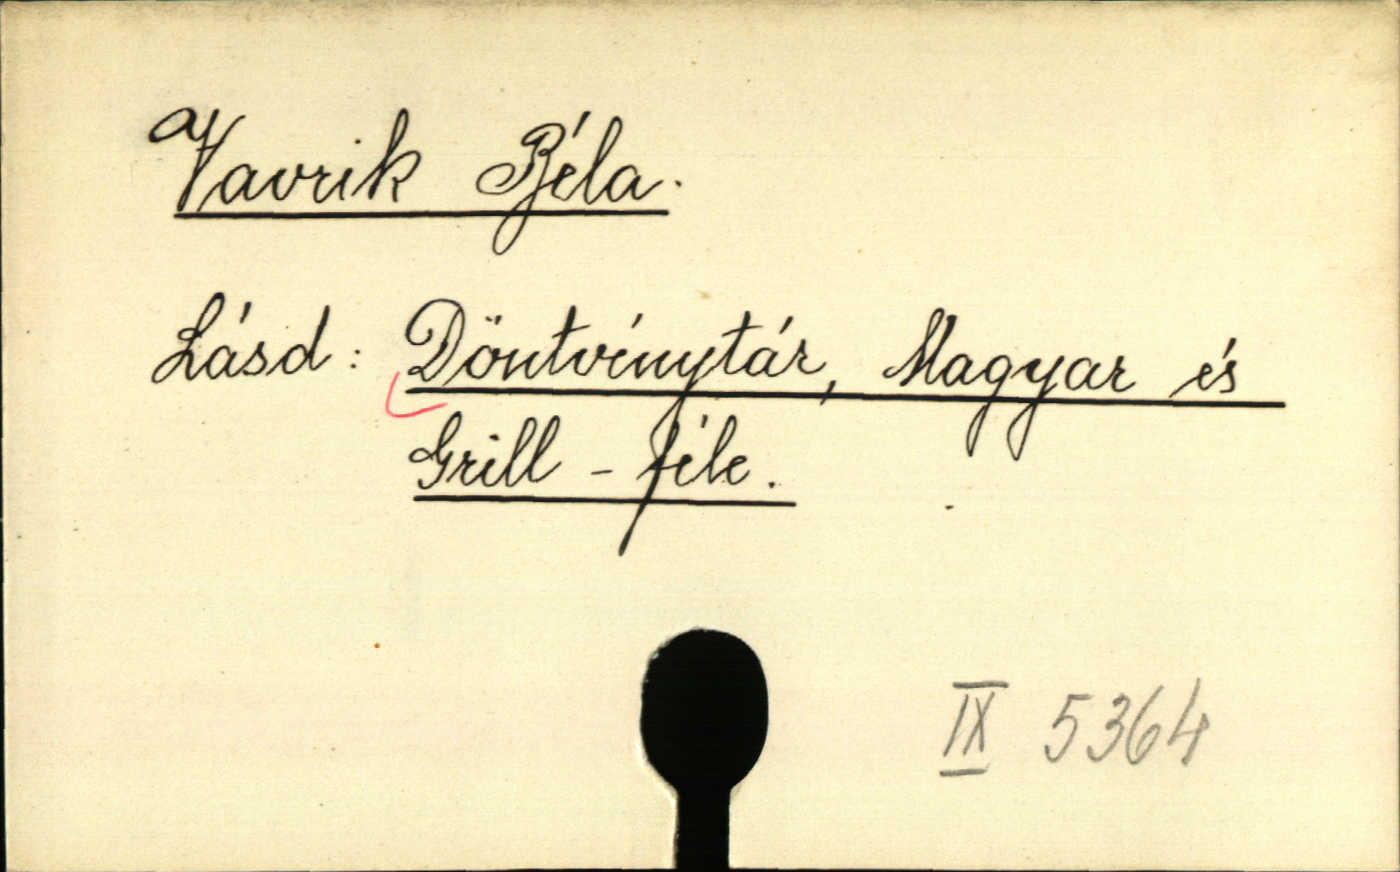 Vavrik Béla.
Lásd: Döntvénytár, Magyar és
Grill-féle.
IX 5364